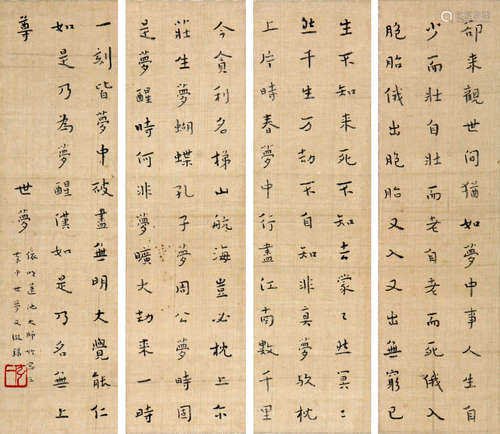 却來觀世間猶如夢中事人生自
少而壯自壯而老自老而死俄入
胞胎俄出胞胎又入又出無窮已
生不知來死不知去蒙〻然冥〻
然千生万劫不自知非真夢歟枕
上片時春夢中行盡江南數千里
今貪利名梯山航海豈必枕上尔
莊生夢蝴蝶孔子夢周公夢時固
是夢醒時何非夢曠大劫來一時
一刻皆夢中破盡無明大覺能仁
如是乃為夢醒漢如是乃名無上
尊 世夢
依明蓮池大師竹窗三